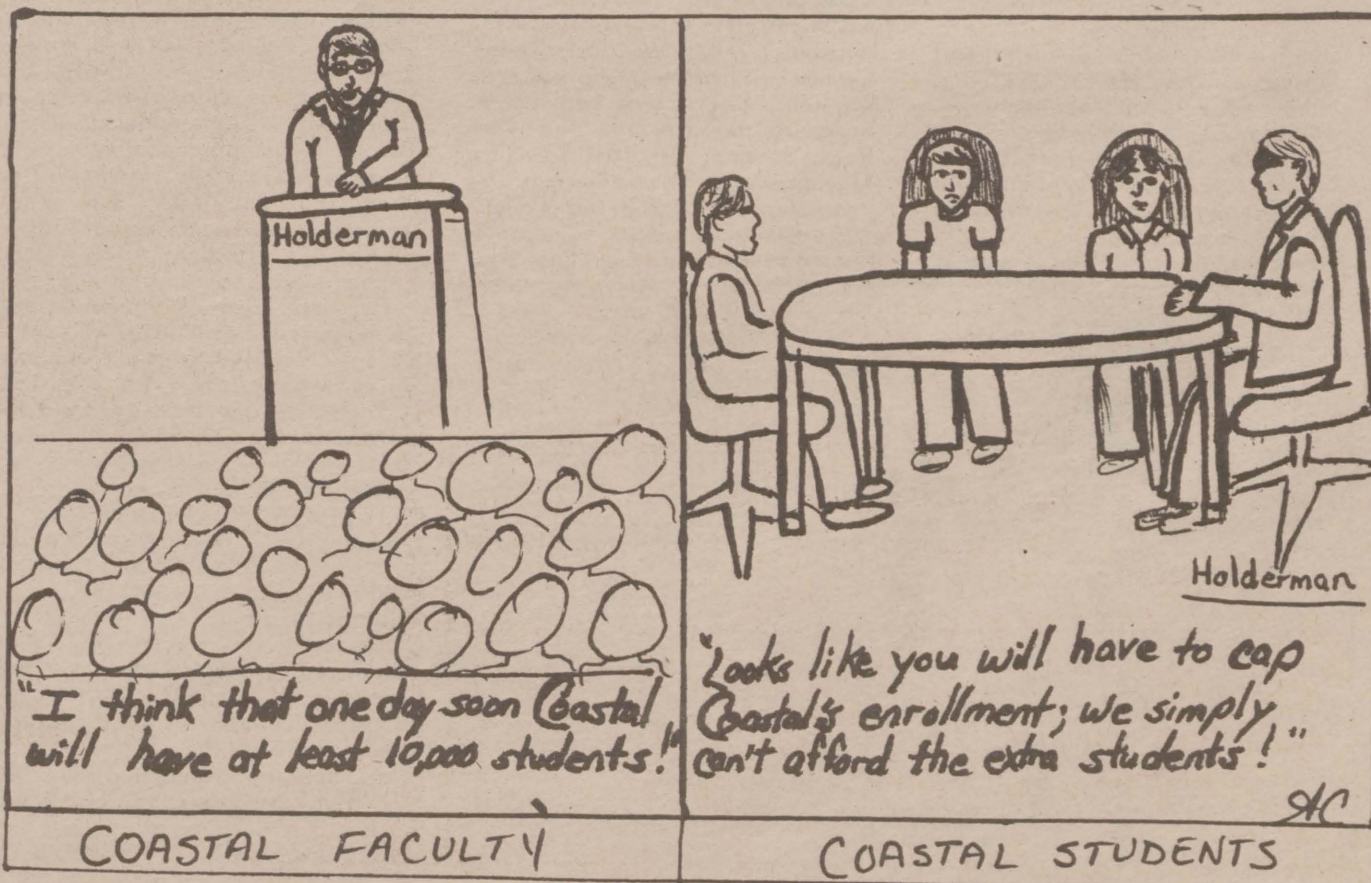 Holderman
"I think that one day soon Coastal
will have at least 10,000 students!"
COASTAL FACULTY
Holderman
"Looks like you will have to cap
Coastal's enrollment; we simply
can't afford the extra students!"
AC
COASTAL STUDENTS